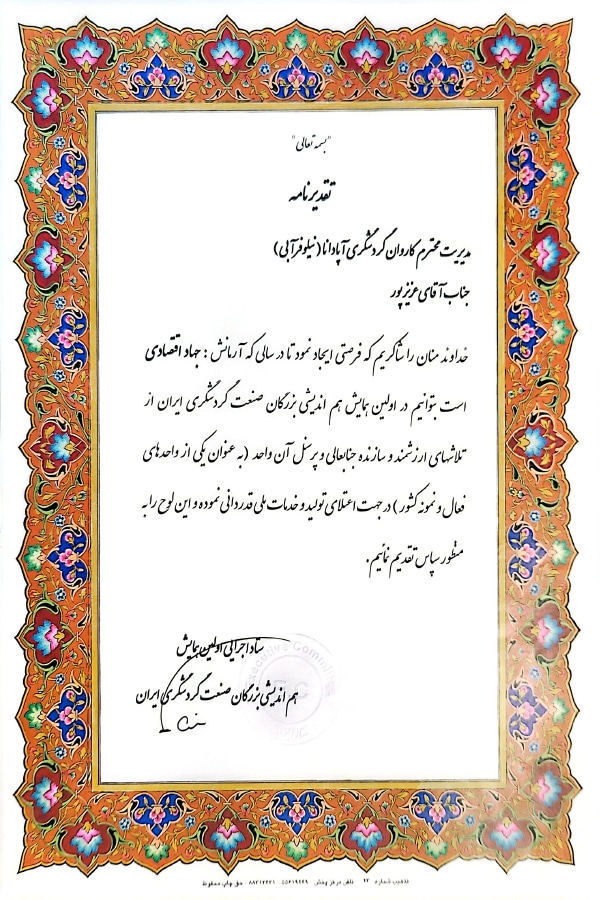 "بسمه تعالی"
تقدیرنامه
مدیریت محترم کاروان گردشگری آپادانا (نیلوفرآبی)
جناب آقای عزیزپور
خداوند منان را شاکریم که فرصتی ایجاد نمود تا در سالی که آرمانش : جهاد اقتصادی
است بتوانیم در اولین همایش هم اندیشی بزرگان صنعت گردشگری ایران از
تلاشهای ارزشمند و سازنده جنابعالی و پرسنل آن واحد (به عنوان یکی از واحدهای
فعال و نمونه کشور) در جهت اعتلای تولید و خدمات ملی قدردانی نموده و این لوح را به
منظور سپاس تقدیم نمائیم.
ستاد اجرایی اولین همایش
هم اندیشی بزرگان صنعت گردشگری ایران
Executive Committee
تذهیب شماره ۱۲ تلفن مرکز پخش ۵۵۶۱۹۴۴۹ ۸۸۳۱۲۳۳۱ حق چاپ محفوظ